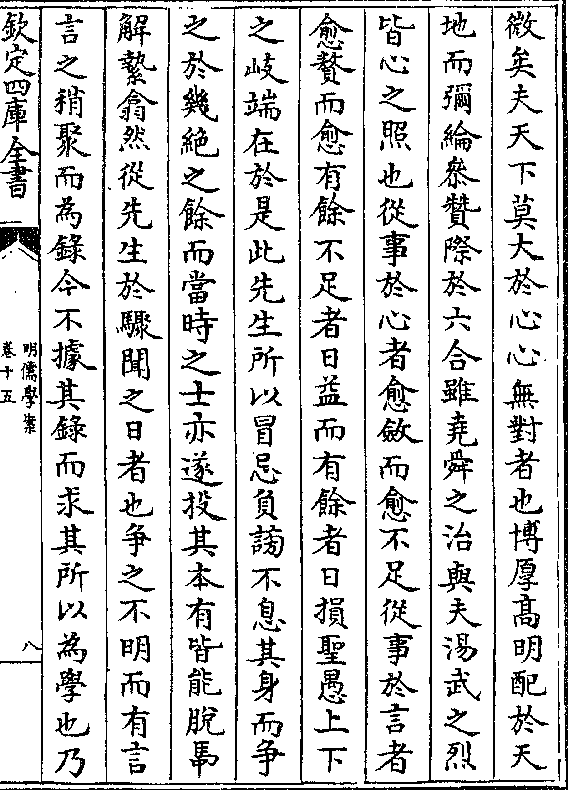 微矣夫天下莫大於心心無對者也博厚高明配於天
地而彌綸叅贊際於六合雖堯舜之治與夫湯武之烈
皆心之照也從事於心者愈斂而愈不足從事於言者
愈贅而愈有餘不足者日益而有餘者日損聖愚上下
之岐端在於是此先生所以冒忌負謗不息其身而爭
之於幾絶之餘而當時之士亦遂投其本有皆能脱馽
解縶翕然從先生於驟聞之日者也争之不明而有言
言之稍聚而為錄今不據其錄而求其所以為學也乃
欽定四庫全書
明儒學案
卷十五
八